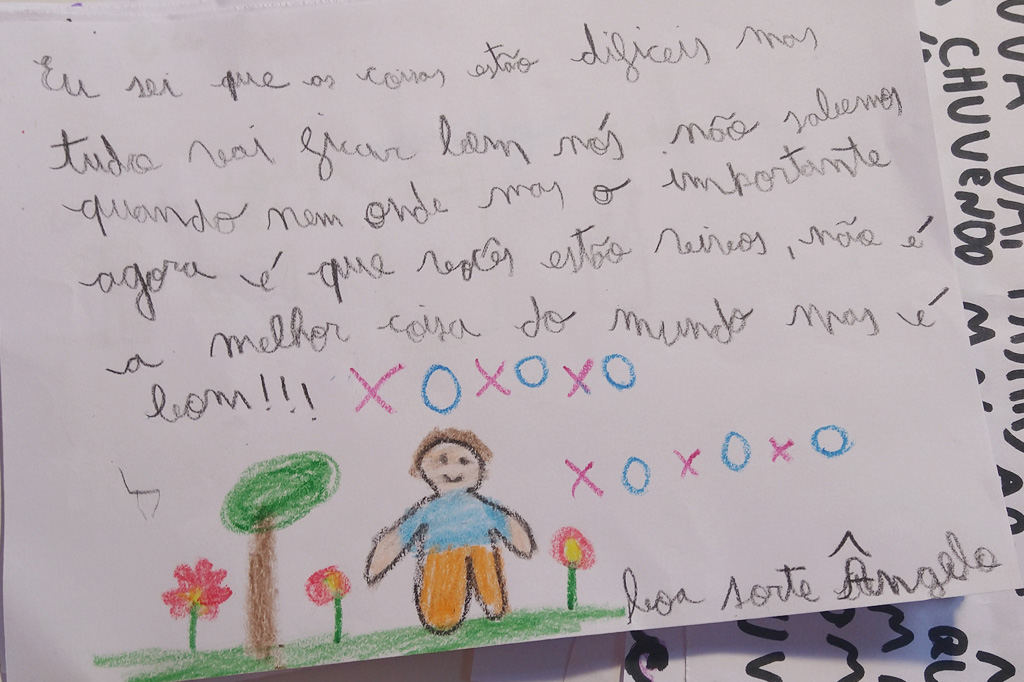 Eu sei que as coisas estão dificeis mas
tudo vai ficar bem nós não sabemos
quando nem onde mas o importante
agora é que vocês estão vivos, não é
a melhor coisa do mundo mas é
bom!!! XOXOXO
XOXOXO
boa sorte Ângelo
CHUVENDO